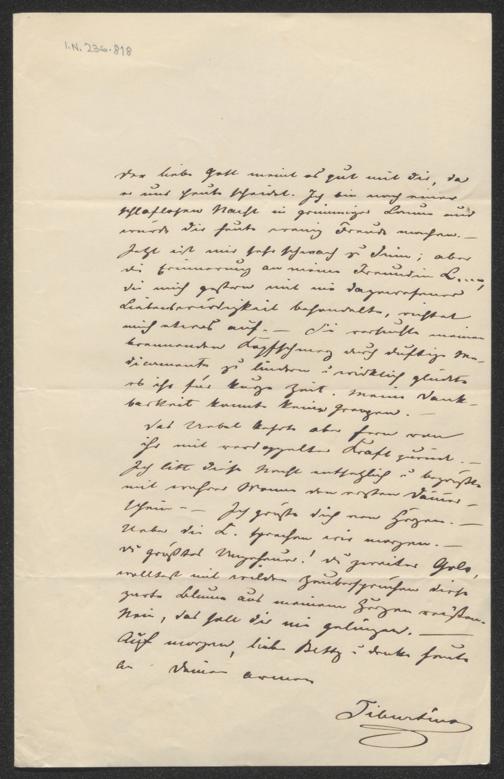 I.N. 236.818
Der liebe Gott meint es gut mit Dir, da
er uns heute scheidet. Ich bin nach einer
schlaflosen Nacht in grimmiger Laune und
würde Dir heute wenig Freude machen. —
Jetzt ist mir sehr schwach zu Sinn; aber
die Erinnerung an meine Freundin L...,
die mich gestern mit nie dagewesener
Liebenswürdigkeit behandelte, richtet
mich etwas auf. — Sie versuchte meinen
brennenden Kopfschmerz durch duftige Me-
dicamente zu lindern u wirklich glückte
es ihr für kurze Zeit. Meine Dank-
barkeit kannte keine Grenzen. —
Das Uebel kehrte aber fern von
ihr mit verdoppelter Kraft zurück. —
Ich litt diese Nacht entsetzlich u begrüßte
mit wahrer Wonne den ersten Dämmer-
schein — Ich grüße Dich von Herzen. —
Ueber die L. sprechen wir morgen. —
Du größtes Ungeheuer! Du zweiter Golo,
wolltest mit wilden Zaubersprüchen diese
zarte Blume aus meinem Herzen reißen.
Nein, das soll Dir nie gelingen. —
Auf morgen, liebe Betty u denke heute
an Deinen armen
Tiburtius